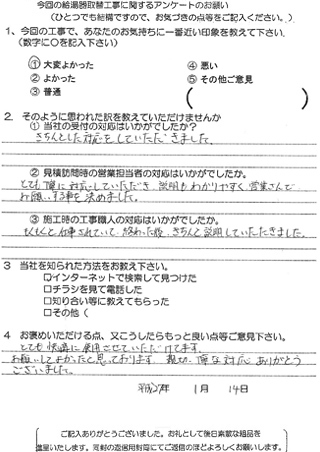 今回の給湯器取替工事に関するアンケートのお願い
(ひとつでも結構ですので、お気づきの点等をご記入ください。)
1、今回の工事で、あなたのお気持ちに一番近い印象を教えて下さい。
(数字に○を記入下さい)
① 大変よかった
④ 悪い
② よかった
⑤ その他ご意見
③ 普通
(　　　)
2. そのように思われた訳を教えていただけませんか
① 当社の受付の対応はいかがでしたか?
きちんとした対応をしていただきました。
② 見積訪問時の営業担当者の対応はいかがでしたか。
とても丁寧に対応していただき、説明もわかりやすく営業さんで
お願いする事を決めました。
③ 施工時の工事職人の対応はいかがでしたか。
もくもくと仕事されていて、終わった後、きちんと説明していただきました。
3 当社を知られた方法をお教え下さい。
□インターネットで検索して見つけた
□チラシを見て電話した
□知り合い等に教えてもらった
□その他 (
4 お褒めいただける点、又こうしたらもっと良い点等ご意見下さい。
とても快適に使用させていただけてます。
お願いしてよかったと思っております。親切、丁寧な対応ありがとう
ございました。
平成27年 1月 14日
ご記入ありがとうございました。お礼として後日素敵な粗品を
進呈いたします。同封の返信用封筒にてご返信のほどよろしくお願いします。